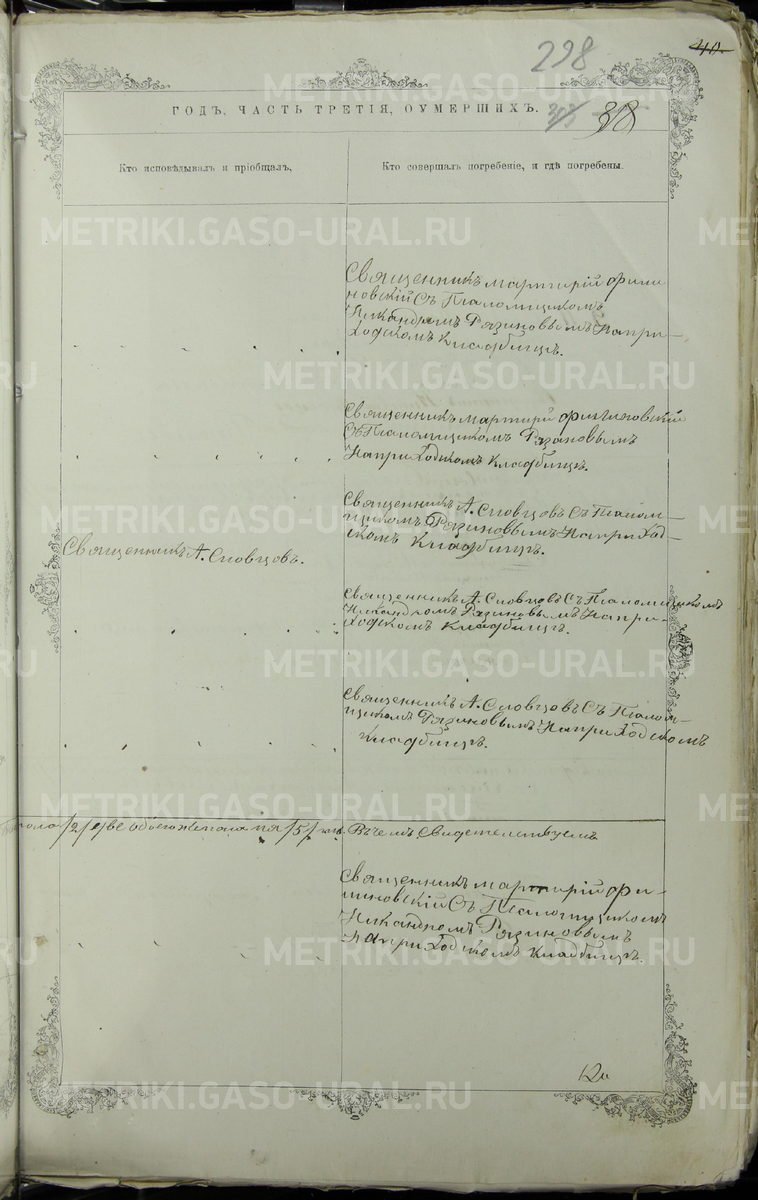 298
40.
ГОДЪ, ЧАСТЬ ТРЕТІЯ, ОУМЕРШИХЪ.
38
Кто исповѣдывалъ и пріобщалъ,
Кто совершалъ погребеніе, и гдѣ погребены.
Священникъ Мартирій Фили
новскій Съ Псаломщикомъ
Никандромъ Рязановымъ На при-
ходскомъ Кладбищѣ.
Священникъ Мартирій Филиновскій
Съ Псаломщикомъ Рязановымъ
На приходскомъ Кладбищѣ.
Священникъ А. Словцовъ Съ Псалом-
щикомъ Рязановымъ На приход-
скомъ Кладбищѣ.
Священникъ А. Словцовъ.
Священникъ А. Словцовъ Съ Псаломщикомъ
Никандромъ Рязановымъ На при-
ходскомъ Кладбищѣ.
Священникъ А. Словцовъ Съ Псалом-
щикомъ Рязановымъ На приходскомъ
Кладбищѣ.
/2/ две обоего пола /5/ Въ чемъ Свидетельствуемъ
Священникъ Мартирій Фи-
линовскій Съ Псаломщикомъ
Никандромъ Рязановымъ
На приходскомъ Кладбищѣ.
METRIKI.GASO-URAL.RU